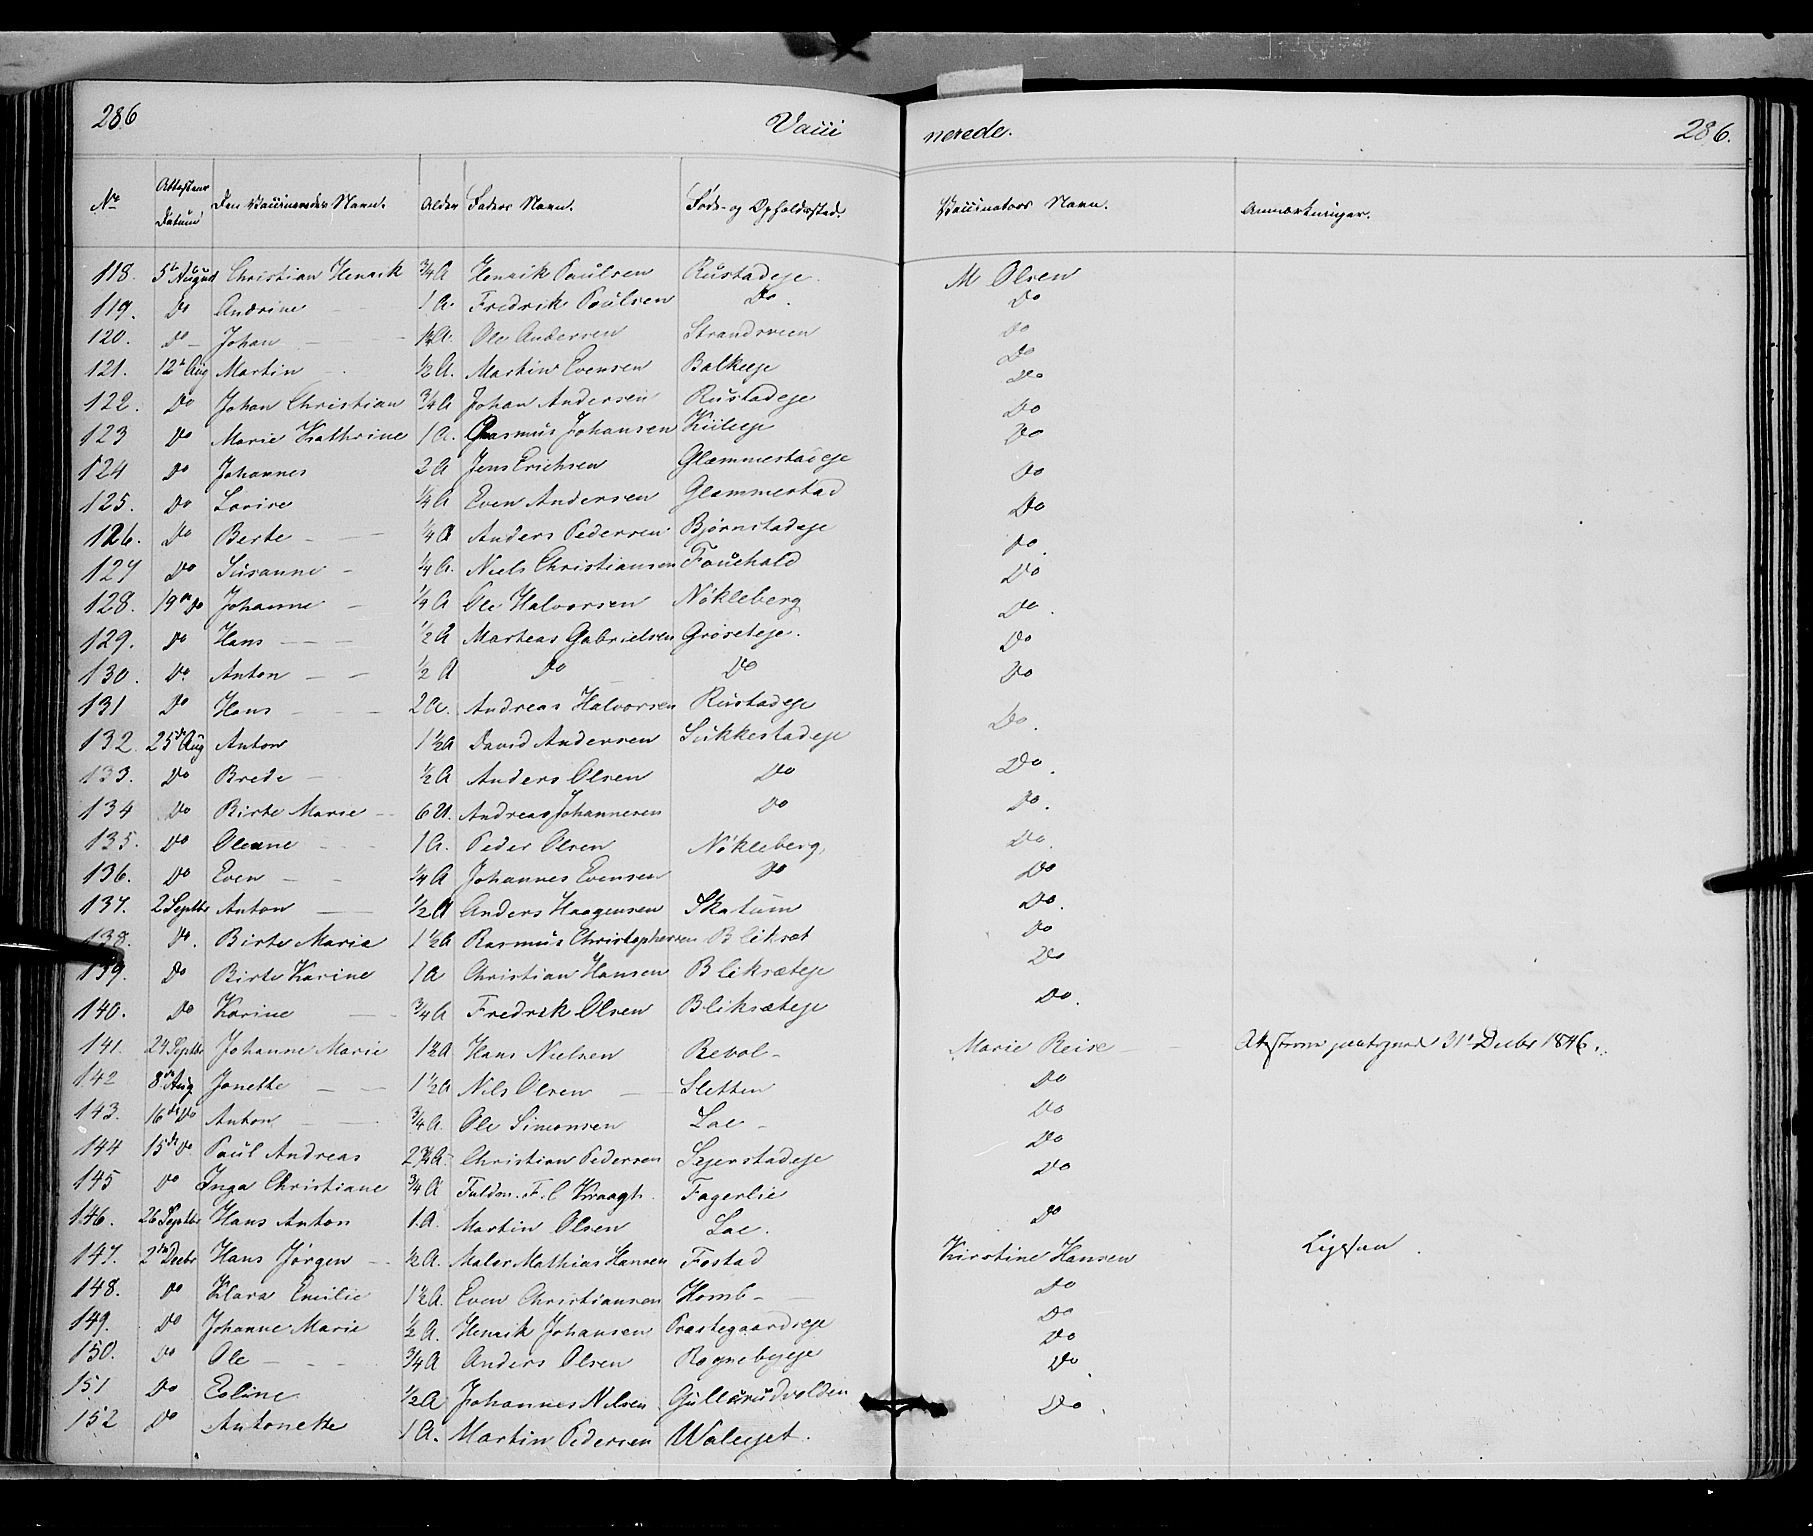 286 Vacci nerede. 286.
No Attestens Datum Den Vaccineredes Navn. Alder Faders Navn. Føde- og Opholdssted. Vaccinators Navn. Anmærkninger.
118. 5te August Christian Henrik 3/4 A Henrik Paulsen Rustadeje M Olsen
119. Do Andrine 1 A. Fredrik Paulsen Do. Do
120. Do Johan A. Ole Andersen Strandveien Do
121. 12te Aug Martin 1/2 A. Martin Evensen Balkeje Do
122. Do Johan Christian 3/4 A Johan Andersen Rustadeje Do
123 Do Marie Kathrine 1 A. Rasmus Johansen Kiileje Do
124 Do Johannes 2 A Jens Erichsen Glæmmestadeje Do
125. Do Lovise 1/4 A Even Andersen Glæmmestad Do
126. Do Berte 1/4 A Anders Pedersen Bjørnstadeje Do
127 Do Susanne 1/4 A. Niels Christiansen Fouchald Do.
128. 19de Do Johanne 1/4 A Ole Halvorsen Nøkleberg Do
129. Do Hans 1/2 A Marteas Gabrielsen Grøseteje. Do.
130. Do. Anton 1/2 A Do Do Do
131 Do Hans 2 A. Andreas Halvorsen Rustadeje Do
132 25de Aug Anton 1 1/2 A David Andersen Sukkestadeje Do.
133. Do Brede 1/2 A Anders Olsen Do Do.
134 Do Birte Marie 6 A. Andreas Johannesen Do Do.
135. Do Oleane 1 A. Peder Olsen Nøkleberg Do.
136. Do Even 1/4 A Johannes Evensen Do Do
137. 2 Septbr Anton 1/2 A Anders Haagensen Skatum Do.
138. Do. Birte Maria 1 1/2 A Rasmus Christophersen Blikset Do
139. Do Birte Karine 1 A Christian Hansen Bliksæteje Do
140. Do Karine 3/4 A Fredrik Olsen Bliksæteje Do.
141. 24 Septbr Johanne Marie 1 1/2 A Hans Nielsen Revol- Marie Reise 31te Decbr 1846.
142 8de Aug Jonette 1 1/2 A Nils Olsen Sletten Do
143. 16de Do Anton 3/4 A. Ole Simonsen Lae Do
144 15de Do Paul Andreas 2 A. Christian Pedersen Sejerstadeje Do
145 Do Inga Christiane 3/4 A Fuldm. F. C Kraagh. Fagerlie Do
146. 26 Septbr Hans Anton 1. A. Martin Olsen Lae. Do
147. 2den Decbr Hans Jørgen 1/2 A. Maler Mathias Hansen Fostad Kirstine Hansen Ligesaa.
148. Do Klara Emilie 1 1/2 A. Even Christiansen Homb- Do
149. Do Johanne Marie 1/2 A. Henrik Johansen Præstegaardseje Do
150. Do Ole 3/4 A Anders Olsen Rognebyeje Do
151 Do Eoline 1/2 A Johannes Nilsen Gullerudvolden Do.
152 Do Antonette 1 A. Martin Pedersen Waleejet. Do.